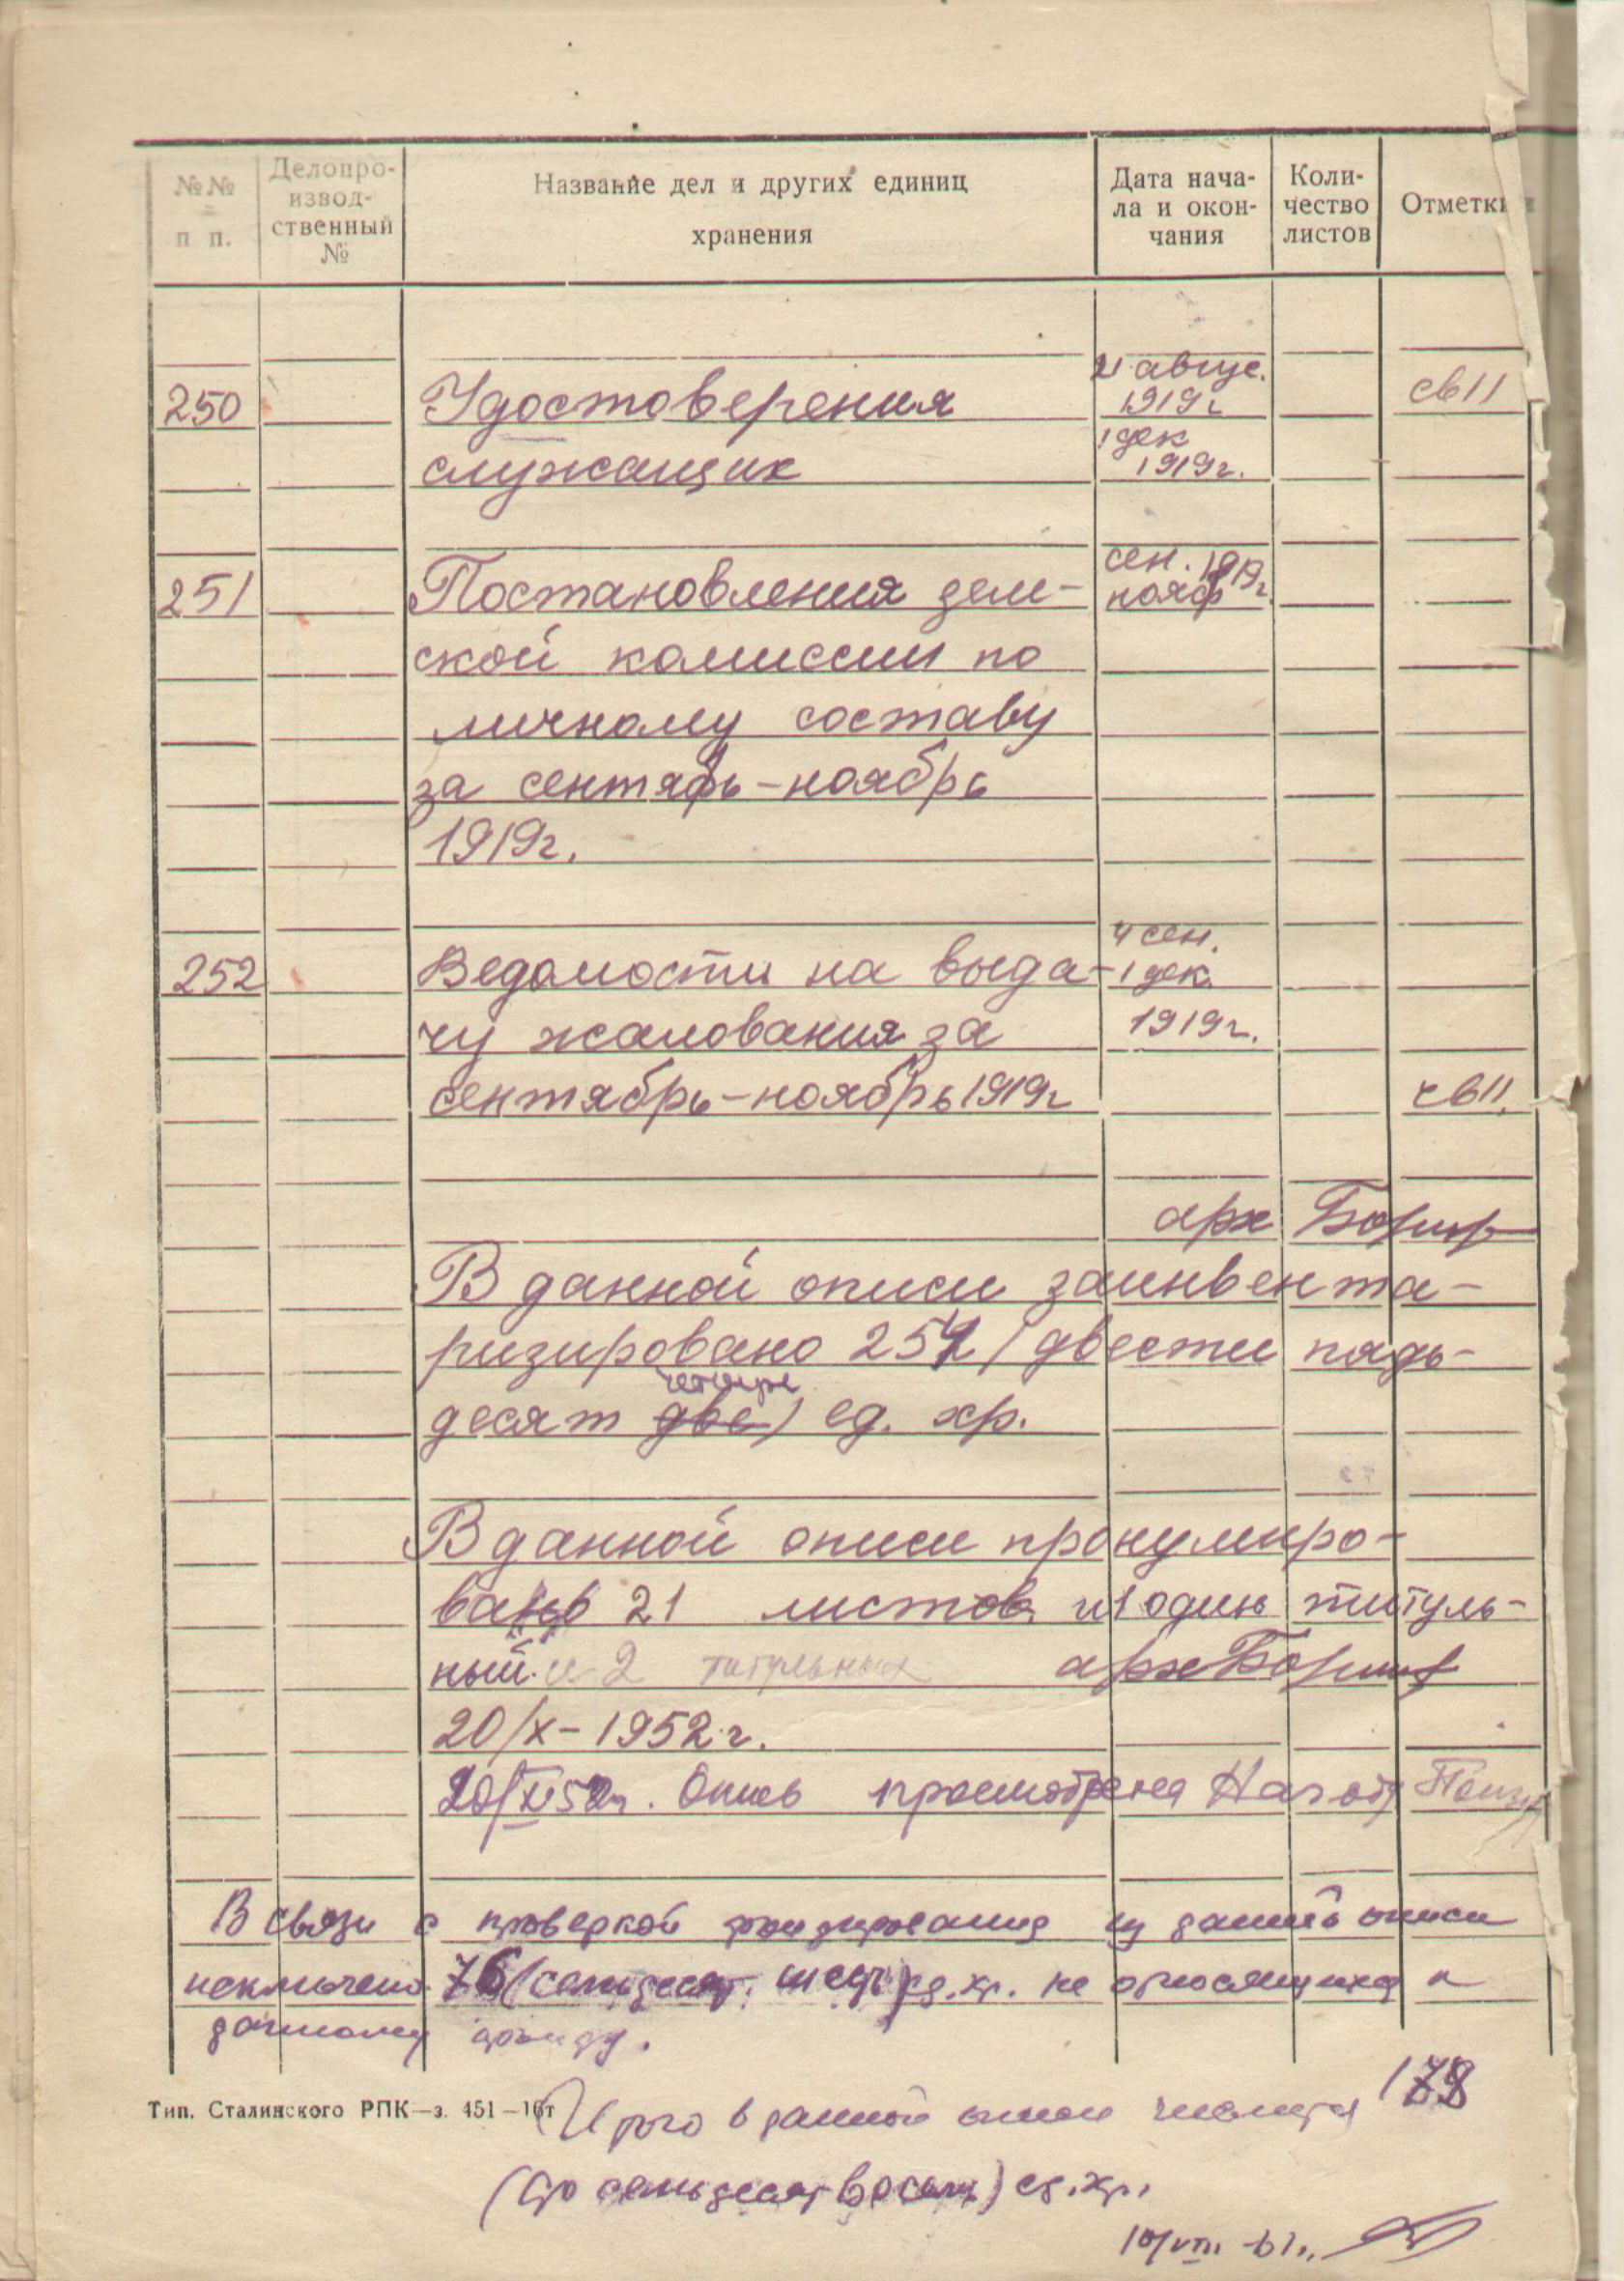 №№ п п.
Делопро-
извод-
ственный
№
Название дел и других единиц
хранения
Дата нача-
ла и окон-
чания
Коли-
чество
листов
Отметки
250 Удостоверения 21 авгус. 1919г св11
служащих 1 дек 1919г.
251 Постановления деле- сен. 1919г.
ской комиссии по нояб
личному составу
за сентябь-ноябрь
1919г.
252 Ведомости на выда- 4 сен. - 1 дек.
чу жалования за 1919г.
сентябрь-ноябрь 1919г св11.
арх
В данной описи заинвента-
ризировано 254 (двести пядь-
десят две четыре) ед. хр.
В данной описи пронумиро-
вано 21 листов и 1 один титуль-
ный. и 2 титульных арх
20/X-1952г.
20/XI 52г. Опись просмотрена Нач
В связи с проверкой фондирования из данной описи
исключено 76 (семьдесят шесть) ед. хр. не относящихся к
данному фонду.
Тип. Сталинского РПК—з. 451—10т
Итого в данной описи числится 178
(сто семьдесят восемь) ед. хр.
10/VIII-61г.